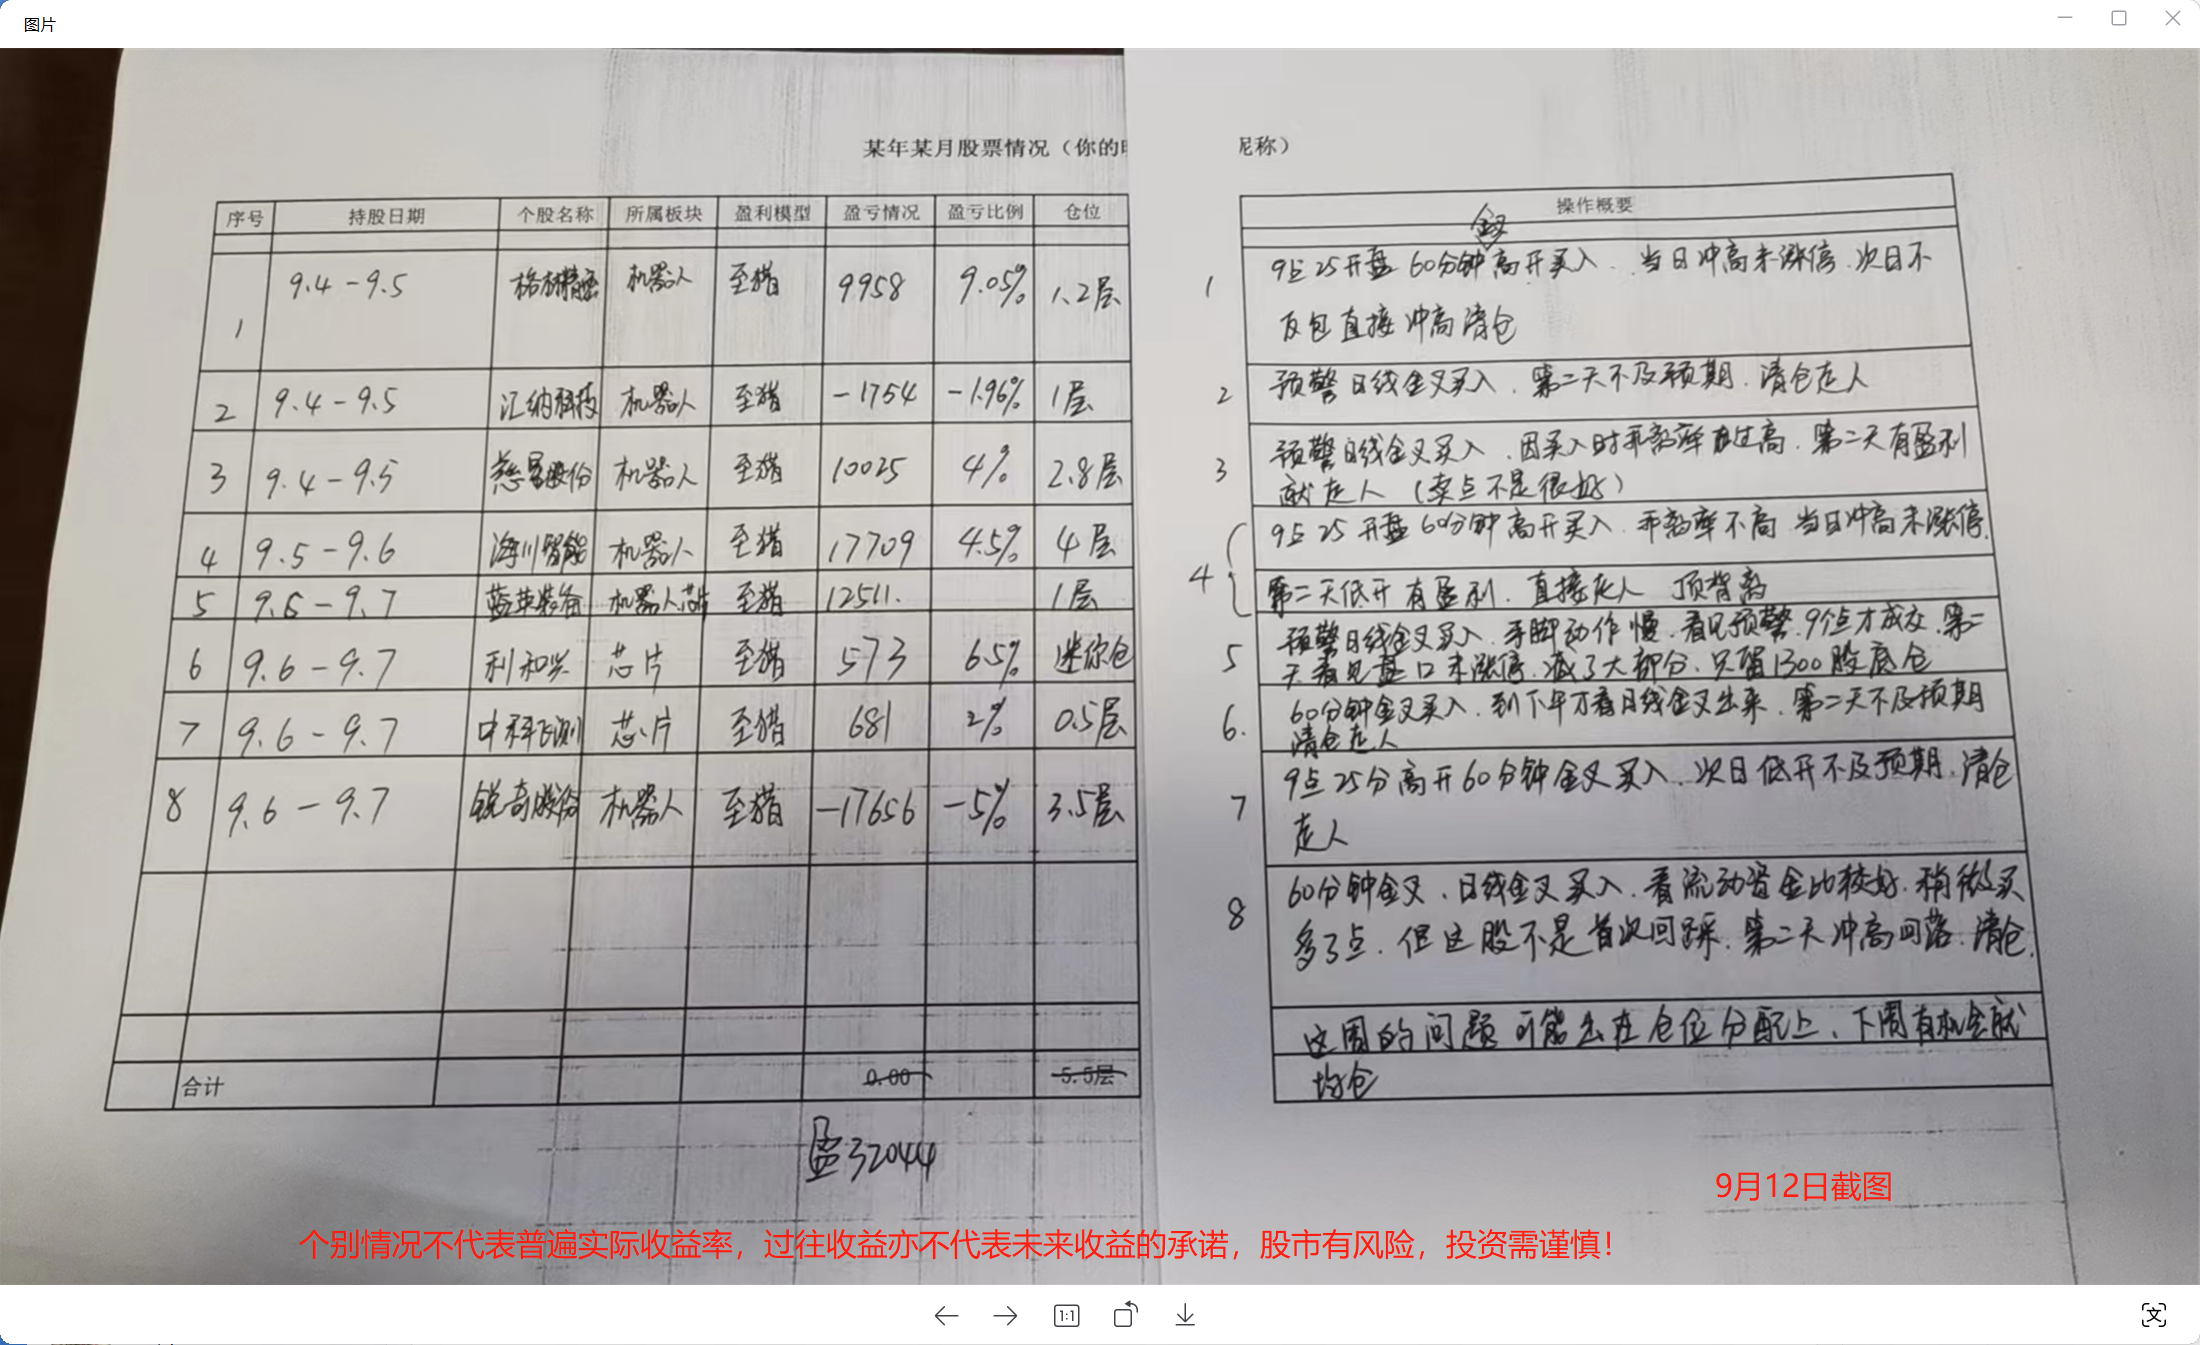 图片
某年某月股票情况（你的
昵称）
序号 持股日期 个股名称 所属板块 盈利模型 盈亏情况 盈亏比例 仓位
1 9.4-9.5 格林精密 机器人 至猎 9958 9.05% 1.2层
2 9.4-9.5 汇纳科技 机器人 至猎 -1754 -1.96% 1层
3 9.4-9.5 慈星股份 机器人 至猎 10025 4% 2.8层
4 9.5-9.6 海川智能 机器人 至猎 17709 4.5% 4层
5 9.6-9.7 蓝英装备 机器人芯片 至猎 12511. 1层
6 9.6-9.7 利和兴 芯片 至猎 573 6.5% 迷你仓
7 9.6-9.7 中科飞测 芯片 至猎 681 2% 0.5层
8 9.6-9.7 锐奇股份 机器人 至猎 -17656 -5% 3.5层
合计 0.00 5.5层
盈32044
操作概要
金叉
1 9点25开盘60分钟高开买入.当日冲高未涨停.次日不
反包直接冲高清仓
2 预警日线金叉买入.第二天不及预期.清仓走人
3 预警日线金叉买入.因买入时乖离率过高.第二天有盈利
就走人(卖点不是很好)
4 9点25开盘60分钟高开买入.乖离率不高.当日冲高未涨停.
第二天低开有盈利.直接走人 顶背离
5 预警日线金叉买入.手脚动作慢.看见预警.9个点才成交.第二
天看见盘口未涨停.减了大部分.只留1300股底仓
6. 60分钟金叉买入.到下午才看日线金叉出来.第二天不及预期
清仓走人
7 9点25分高开60分钟金叉买入.次日低开不及预期.清仓
走人
8 60分钟金叉.日线金叉买入.看流动资金比较好.稍微买
多了点.但这股不是首次回踩.第二天冲高回落.清仓.
这周的问题可能出在仓位分配上、下周有机会就
均仓
9月12日截图
个别情况不代表普遍实际收益率，过往收益亦不代表未来收益的承诺，股市有风险，投资需谨慎！
1:1
文